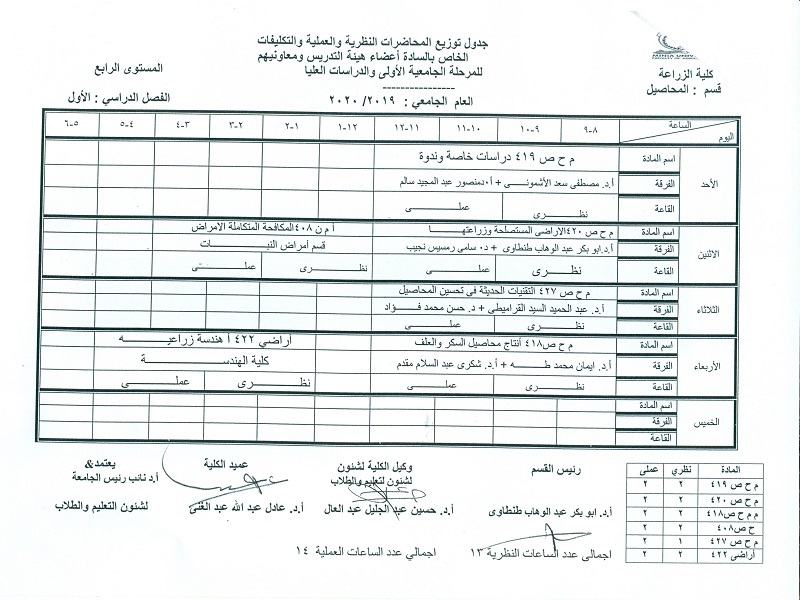 جدول توزيع المحاضرات النظرية والعملية والتكليفات
الخاص بالسادة أعضاء هيئة التدريس ومعاونيهم
للمرحلة الجامعية الأولى والدراسات العليا
كلية الزراعة
قسم : المحاصيل
المستوى الرابع
العام الجامعي : ٢٠١٩/ ٢٠٢٠
الفصل الدراسي : الأول
الساعة
اليوم
٨-٩ ٩-١٠ ١٠-١١ ١١-١٢ ١٢-١ ١-٢ ٢-٣ ٣-٤ ٤-٥ ٥-٦
الأحد
اسم المادة م ح ص ٤١٩ دراسات خاصة وندوة
الفرقة أ.د. مصطفى سعد الأشمونـــى + أ.د.منصور عبد المجيد سالم
القاعة نظـــرى عملـــى
الاثنين
اسم المادة م ح ص ٤٢٠الاراضى المستصلحة وزراعتهـــا أ م ن ٤٠٨المكافحة المتكاملة الامراض
الفرقة أ.د.ابو بكر عبد الوهاب طنطاوى + د. سامى رمسيس نجيب قسم أمراض النبـــات
القاعة نظـــرى عملـــى نظـــرى عملـــى
الثلاثاء
اسم المادة م ح ص ٤٢٧ التقنيات الحديثة فى تحسين المحاصيل
الفرقة أ.د. عبد الحميد السيد القراميطى + د. حسن محمد فـــؤاد
القاعة نظـــرى عملـــى
الأربعاء
اسم المادة م ح ص٤١٨ أنتاج محاصيل السكر والعلف أراضي ٤٢٢ أ هندسة زراعيـــه
الفرقة أ.د. ايمان محمد طـــه + أ.د. شكرى عبد السلام مقدم كلية الهندســـة
القاعة نظـــرى عملـــى نظـــرى عملـــى
الخميس
اسم المادة
الفرقة
القاعة
المادة نظري عملى
م ح ص ٤١٩ ٢ ٢
م ح ص ٤٢٠ ٢ ٢
م م ح ص٤١٨ ٢ ٢
ح ص٤٠٨ ٢ ٢
م ح ص ٤٢٧ ١ ٢
أراضى ٤٢٢ ٢ ٢
رئيس القسم
أ.د. ابو بكر عبد الوهاب طنطاوى
وكيل الكلية لشئون
لشئون لتعليم والطلاب
أ.د. حسين عبد الجليل عبد العال
عميد الكلية
أ.د. عادل عبد الله عبد الغنى
يعتمد&
أ.د نائب رئيس الجامعة
لشئون التعليم والطلاب
اجمالى عدد الساعات النظرية ١٣ اجمالي عدد الساعات العملية ١٤